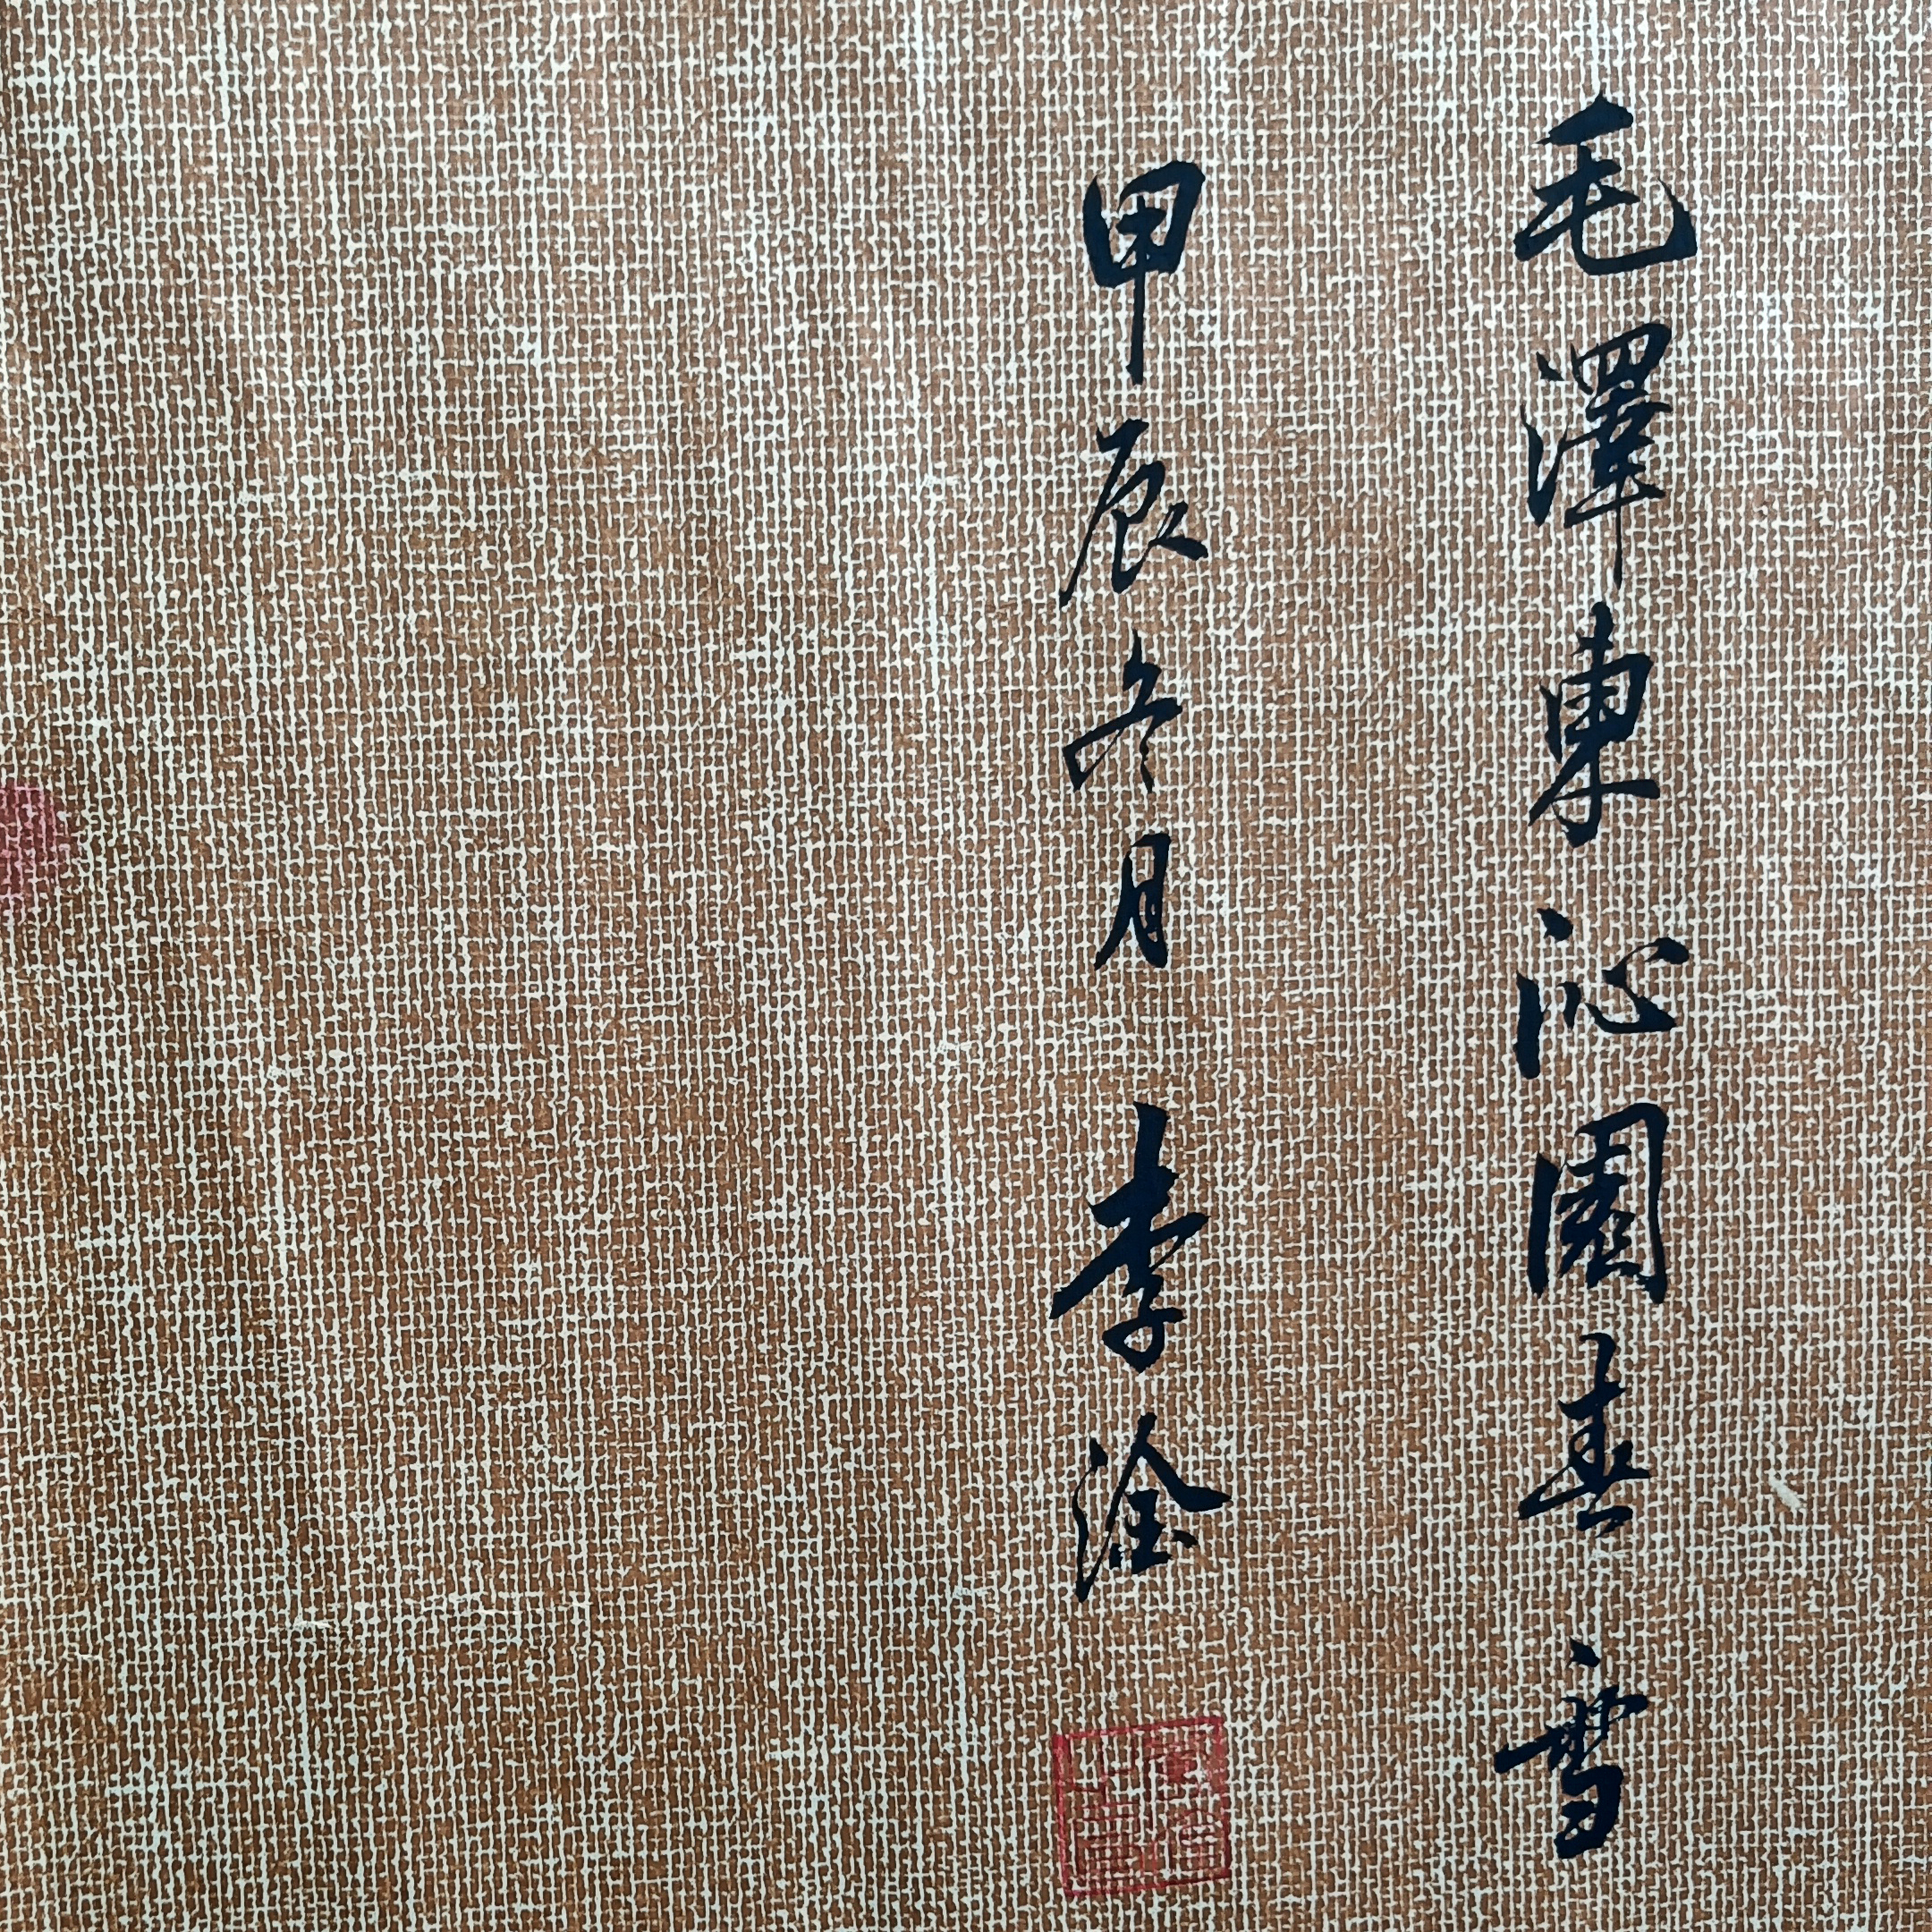 毛澤東沁園春雪
甲辰冬月 李淦